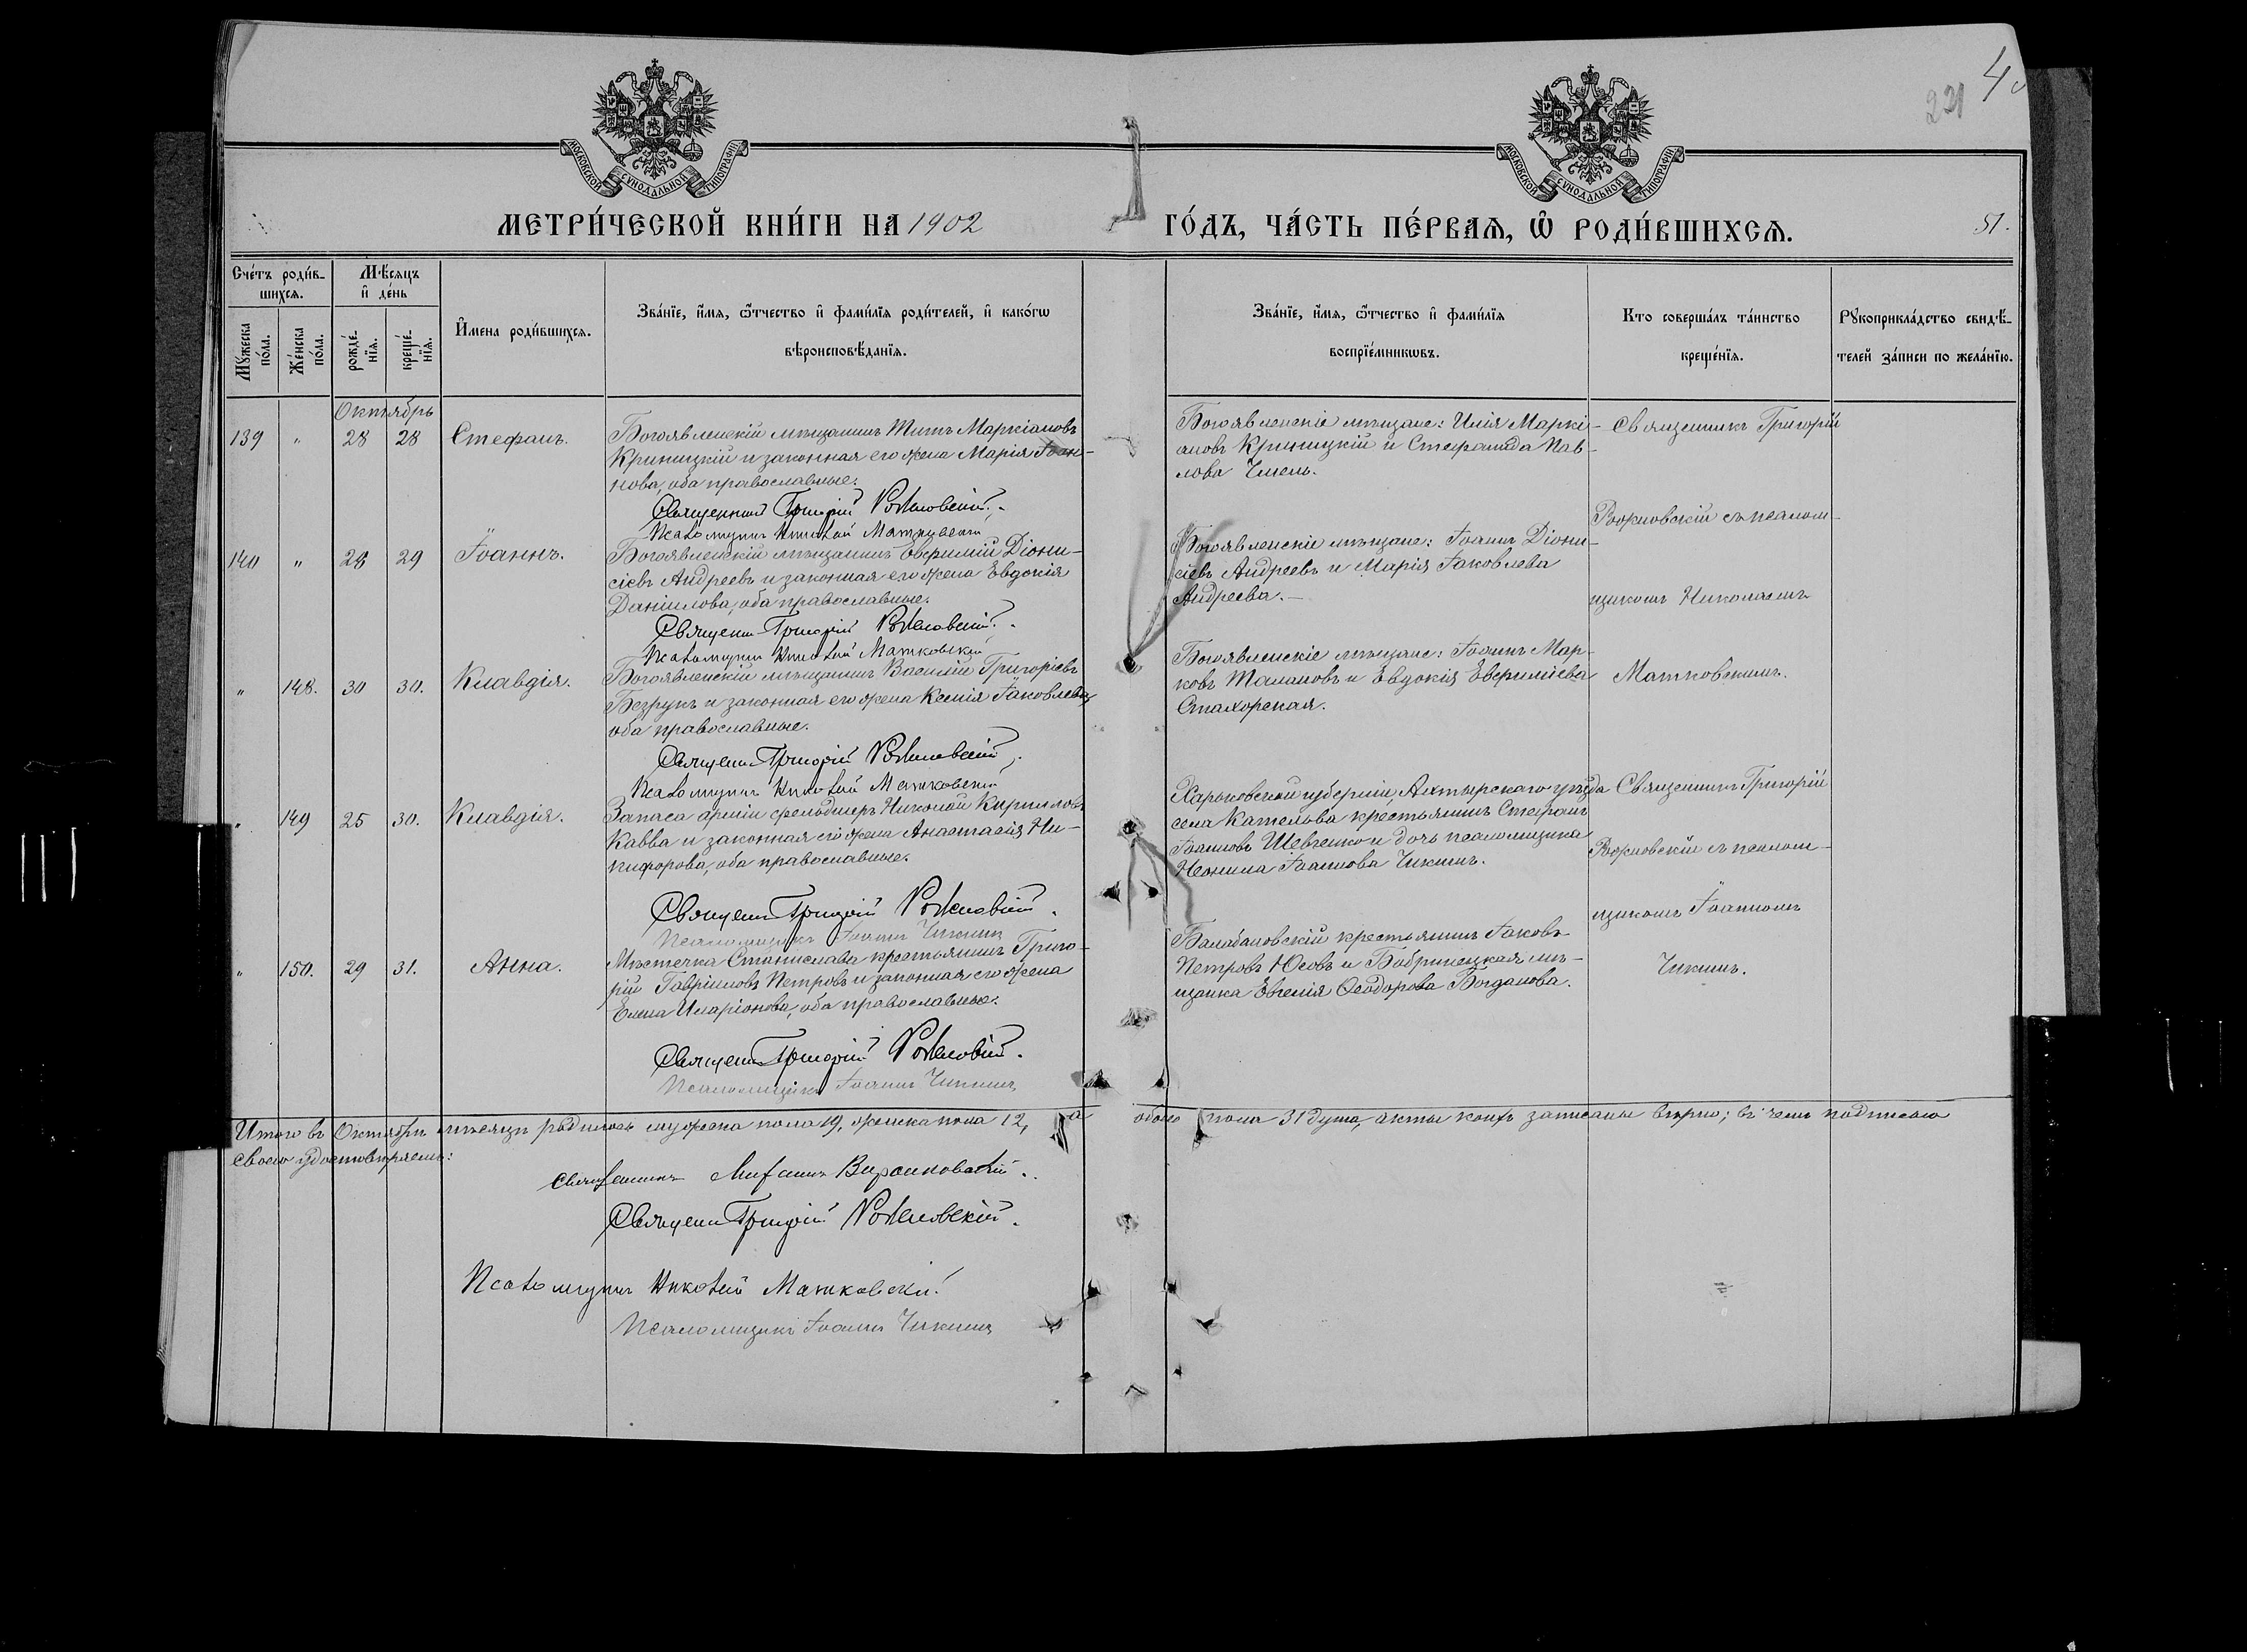 4
221
МОСКОВСКОЙ СѴНОДАЛЬНОЙ ТИПОГРАФІИ
МОСКОВСКОЙ СѴНОДАЛЬНОЙ ТИПОГРАФІИ
МЕТРИ́ЧЕСКОЙ КНИ́ГИ НА 1902 ГО́ДЪ, ЧА́СТЬ ПЕ́РВАѦ, Ѡ҆ РОДИ́ВШИХСѦ.
51.
Сче́тъ роди́в-
шихсѧ.
Мꙋ́жеска по́ла.
Же́нска по́ла.
Мѣ́сѧцъ
и҆ де́нь
рожде́-нїѧ.
креще́-нїѧ.
И҆мена роди́вшихсѧ.
Зва́нїе, и҆́мѧ, ѻ҆́тчество и҆ фами́лїѧ роди́телей, и҆ како́гѡ
вѣроисповѣ́данїѧ.
Зва́нїе, и҆́мѧ, ѻ҆́тчество и҆ фами́лїѧ
воспрїе́мникѡвъ.
Кто совершáлъ та́инство
креще́нїѧ.
Рꙋкоприкла́дство свидѣ́-
телей за́писи по жела́нїю.
Октябрь
139 " 28 28 Стефанъ.
Богоявленскій мѣщанинъ Титъ Маркіановъ
Криницкій и законная его жена Марія Іоан-
нова, оба православные.
Священникъ Григорій Рожновскій.
Псаломщикъ Николай Матковскій
Богоявленскіе мѣщане: Илія Маркі-
ановъ Криницкій и Стефанида Пав-
лова Чмель.
Священникъ Григорій
Рожновскій съ псалом-
щикомъ Николаемъ
Матковскимъ.
140 " 28 29 Іоаннъ.
Богоявленскій мѣщанинъ Евфимій Діони-
сіевъ Андреевъ и законная его жена Евдокія
Даніилова, оба православные.
Священн. Григорій Рожновскій.
Псаломщикъ Николай Матковскій
Богоявленскіе мѣщане: Іоаннъ Діони-
сіевъ Андреевъ и Марія Іаковлева
Андреева.
" 148. 30 30. Клавдія.
Богоявленскій мѣщанинъ Василій Григоріевъ
Безрукъ и законная его жена Ксенія Іаковлева,
оба православные.
Священн. Григорій Рожновскій.
Псаломщикъ Николай Матковскій
Богоявленскіе мѣщане: Іоаннъ Мар-
ковъ Талановъ и Евдокія Евфиміева
Стахорская.
" 149 25 30. Клавдія.
Запаса арміи фельдшеръ Николай Кирилловъ
Кавва и законная его жена Анастасія Ни-
кифорова, оба православные.
Священн. Григорій Рожновскій.
Псаломщикъ Іоаннъ Чикинъ
Харьковской губерніи, Ахтырскаго уѣзда
села Кательва крестьянинъ Стефанъ
Іоанновъ Шевченко и дочь псаломщика
Неонила Іоаннова Чикинъ.
Священникъ Григорій
Рожновскій съ псалом-
щикомъ Іоанномъ
Чикинъ.
" 150. 29 31. Анна.
Мѣстечка Станислава крестьянинъ Григо-
рій Гавріиловъ Петровъ и законная его жена
Елена Иларіонова, оба православные.
Священн. Григорій Рожновскій.
Псаломщикъ Іоаннъ Чикинъ
Балабановскій крестьянинъ Іаковъ
Петровъ Юсовъ и Бобринецкая мѣ-
щанка Евгенія Ѳеодорова Богданова.
Итого въ Октябрѣ мѣсяцѣ родилось мужеска пола 19, женска пола 12, а обоего пола 31 душа, акты коихъ записаны вѣрно; въ чемъ подписью
своею удостовѣряемъ:
Священникъ
Священн. Григорій Рожновскій.
Псаломщикъ Николай Матковскій
Псаломщикъ Іоаннъ Чикинъ